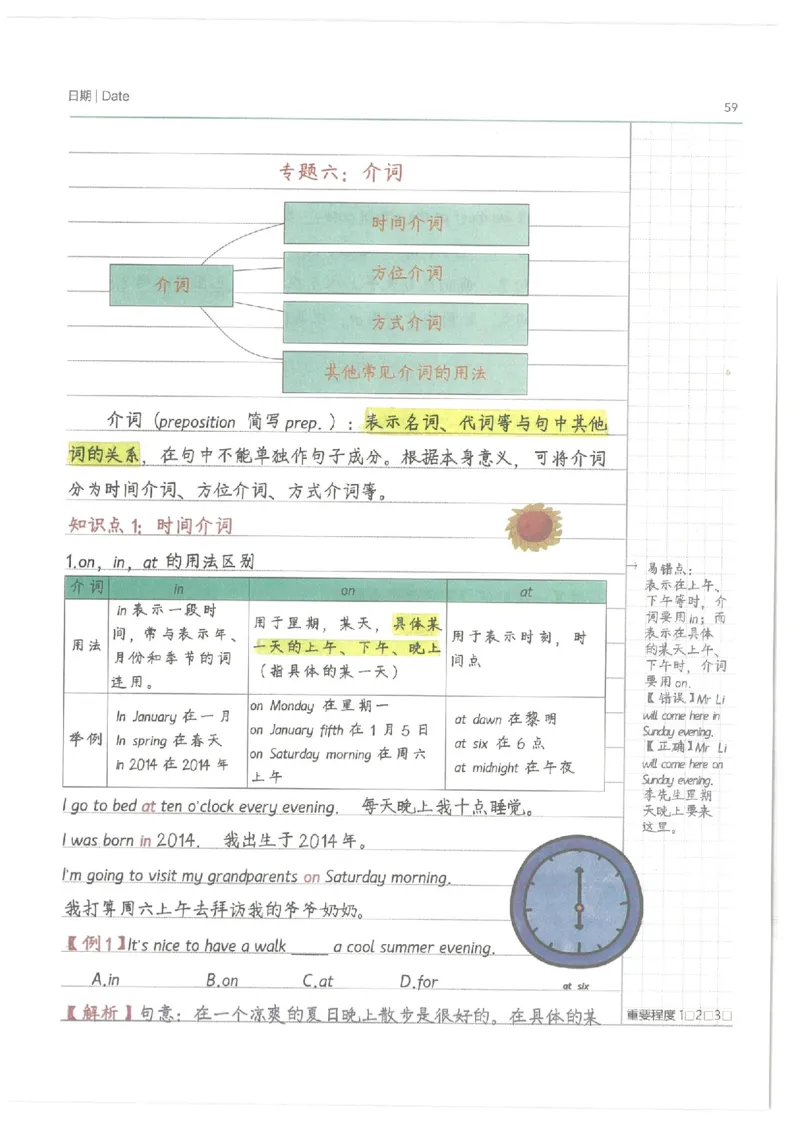 日期 | Date
59
专题六：介词
时间介词
方位介词
介词
方式介词
其他常见介词的用法
介词（preposition 简写 prep.）：表示名词、代词等与句中其他
词的关系，在句中不能单独作句子成分。根据本身意义，可将介词
分为时间介词、方位介词、方式介词等。
知识点 1：时间介词
1.on，in，at 的用法区别
介词 in on at
用法
in 表示一段时
间，常与表示年、
月份和季节的词
连用。
用于星期，某天，具体某
一天的上午、下午、晚上
（指具体的某一天）
用于表示时刻，时
间点
举例
In January 在一月
In spring 在春天
in 2014 在 2014 年
on Monday 在星期一
on January fifth 在 1 月 5 日
on Saturday morning 在周六
上午
at dawn 在黎明
at six 在 6 点
at midnight 在午夜
I go to bed at ten o'clock every evening. 每天晚上我十点睡觉。
I was born in 2014. 我出生于 2014 年。
I'm going to visit my grandparents on Saturday morning.
我打算周六上午去拜访我的爷爷奶奶。
【例 1】It's nice to have a walk _____ a cool summer evening.
A.in B.on C.at D.for
at six
【解析】句意：在一个凉爽的夏日晚上散步是很好的。在具体的某
→ 易错点：
表示在上午、
下午等时，介
词要用 in；而
表示在具体
的某天上午、
下午时，介词
要用 on.
【错误】Mr Li
will come here in
Sunday evening.
【正确】Mr Li
will come here on
Sunday evening.
李先生星期
天晚上要来
这里。
重要程度 1□2□3□